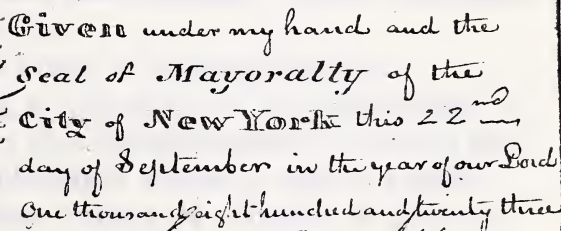 Given under my hand and the
Seal of Mayoralty of the
City of New York this 22nd
day of September in the year of our Lord
One thousand eight hundred and twenty three